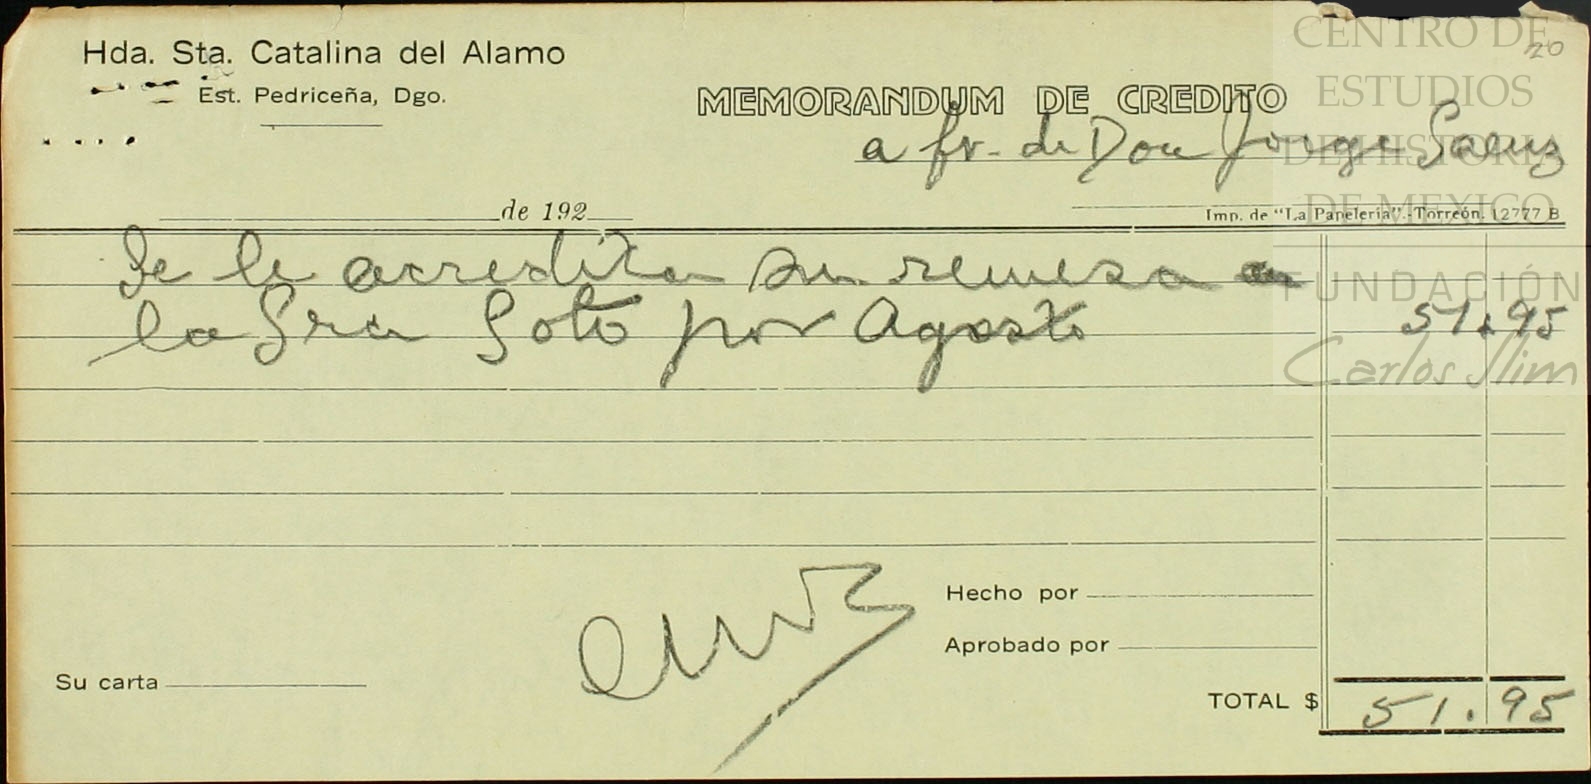 Hda. Sta. Catalina del Alamo
Est. Pedriceña, Dgo.
MEMORANDUM DE CREDITO
a fv. de Don Jorge Saenz
de 192
Imp. de "La Papelería".-Torreón. 12777 B
Se le acredita su remesa a
la Sra Soto por Agosto 51.95
Hecho por
Aprobado por
Su carta
TOTAL $ 51.95
20
CENTRO DE
ESTUDIOS
DE HISTORIA
DE MEXICO
FUNDACIÓN
Carlos Slim